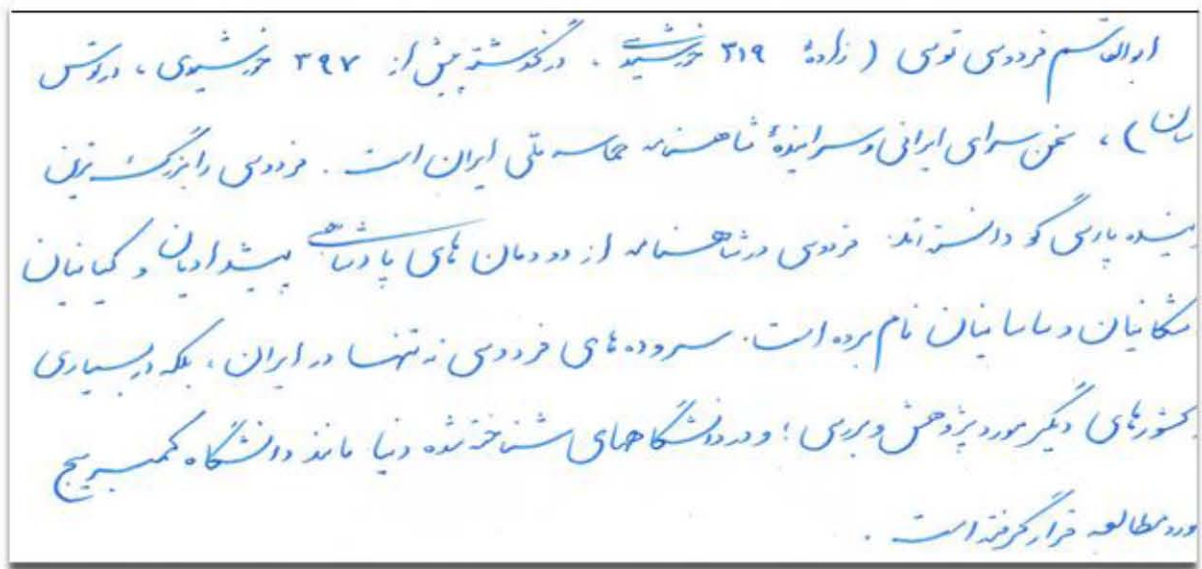 ابوالقاسم فردوسی توسی (زادهٔ ۳۱۹ خورشیدی، درگذشته پیش از ۳۹۷ خورشیدی، در توس
)، سخن سرای ایرانی و سرایندهٔ شاهنامه حماسه ملی ایران است. فردوسی را بزرگ ترین
پارسی گو دانسته اند. فردوسی در شاهنامه از دودمان های پادشاهی پیشدادیان و کیانیان
اشکانیان و ساسانیان نام برده است. سروده های فردوسی نه تنها در ایران، بلکه در بسیاری
کشورهای دیگر مورد پژوهش و بررسی؛ و در دانشگاههای شناخته شده دنیا مانند دانشگاه کمبریج
مورد مطالعه قرار گرفته است.